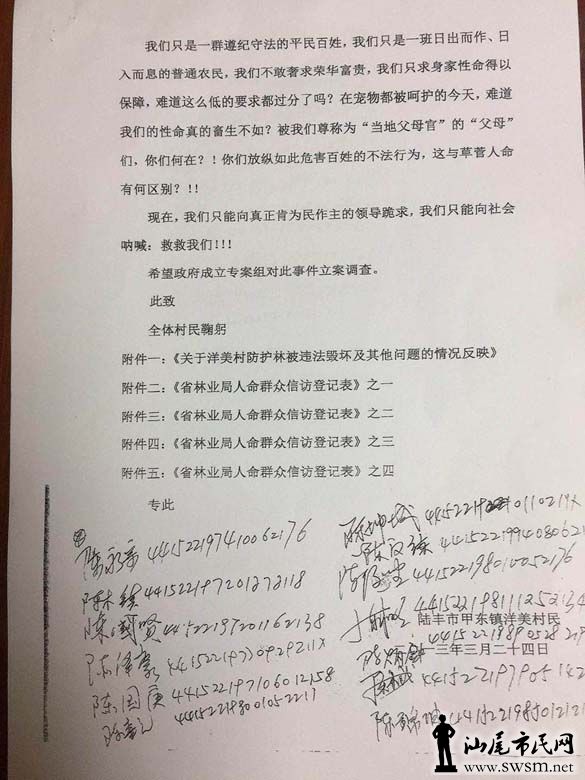 我们只是一群遵纪守法的平民百姓，我们只是一班日出而作、日
入而息的普通农民，我们不敢奢求荣华富贵，我们只求身家性命得以
保障，难道这么低的要求都过分了吗？在宠物都被呵护的今天，难道
我们的性命真的畜生不如？被我们尊称为“当地父母官”的“父母”
们，你们何在？！你们放纵如此危害百姓的不法行为，这与草菅人命
有何区别？!!
现在，我们只能向真正肯为民作主的领导跪求，我们只能向社会
呐喊：救救我们!!!
希望政府成立专案组对此事件立案调查。
此致
全体村民鞠躬
附件一：《关于洋美村防护林被违法毁坏及其他问题的情况反映》
附件二：《省林业局人命群众信访登记表》之一
附件三：《省林业局人命群众信访登记表》之二
附件四：《省林业局人命群众信访登记表》之三
附件五：《省林业局人命群众信访登记表》之四
专此
441522197410062176
441522197201162138
陈泽豪
陈国庚 441522197106012158
441522198010052176
陆丰市甲东镇洋美村民
一三年三月二十四日
汕尾市民网
www.swsm.net